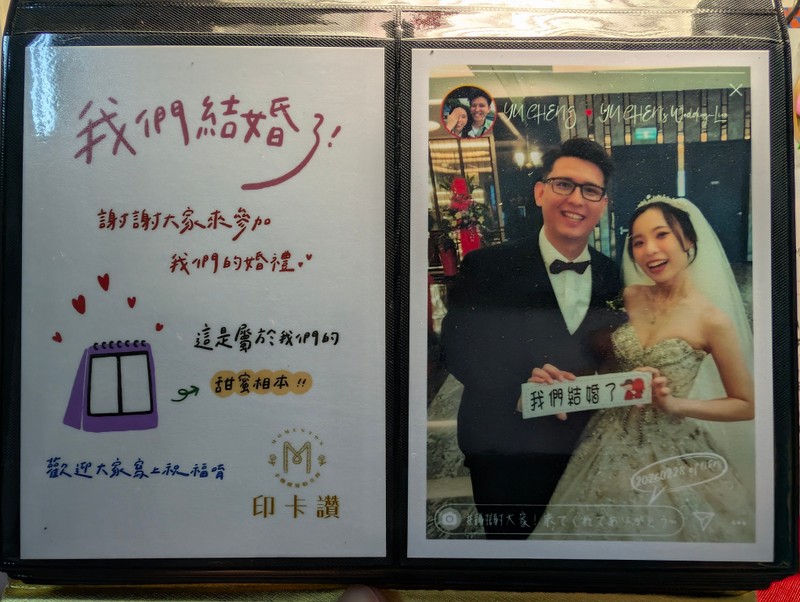 我們結婚了!
謝謝大家來參加
我們的婚禮
這是屬於我們的
甜蜜相本!!
歡迎大家寫上祝福唷
M
印卡讚
YU CHENG ♥ YU CHEN's Wedding
我們結婚了
#謝謝大家!来てくれてありがとう~